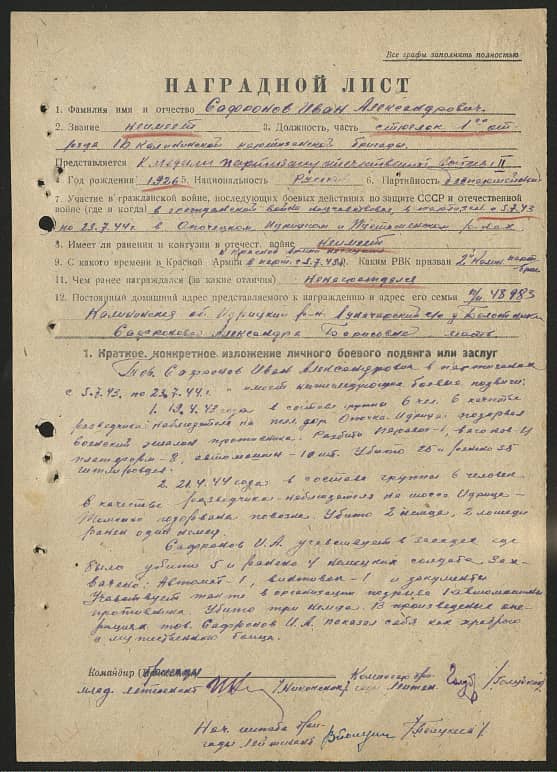 Все графы заполнять полностью
НАГРАДНОЙ ЛИСТ
1. Фамилия имя и отчество Сафронов Иван Александрович.
2. Звание неимеет 3. Должность, часть стрелок 1го от
ряда 1й Калининской партизанской бригады.
Представляется К медали партизану отечественной войны II
4. Год рождения 1926 5. Национальность Русский 6. Партийность беспартийный
7. Участие в гражданской войне, последующих боевых действиях по защите СССР и отечественной
войне (где и когда) в гражданской войне неучаствовал, в партизанах с 5.7.43
по 23.7.44г. в Опочецком Идрицком и
8. Имеет ли ранения и контузии в отечест. войне неимеет
9. С какого времени в Красной Армии в парт. с 5.7.43г. Каким РВК призван 2й Калин. парт.
бриг.
11. Чем ранее награждался (за какие отличия) Ненаграждался
12. Постоянный домашний адрес представляемого к награждению и адрес его семьи п/п. 48983
Калининская об. Идрицкий р-н. с/с д.
Сафронова Александра Борисовна мать
1. Краткое, конкретное изложение личного боевого подвига или заслуг
Тов. Сафронов Иван Александрович в партизанах
с 5.7.43. по 23.7.44г. имеет нижеследующие боевые подвиги:
1. 19.4.43 года в составе группы 6 чел. в качестве
разведчика-наблюдателя на жел. дор. Опочка-Идрица подорвал
воинский эшелон противника. Разбито паровоз-1, вагонов-4
платформ-8, автомашин-10 шт. Убито 25 и ранено 35
гитлеровцев.
2. 21.4.44 года в составе группы 6 человек
в качестве разведчика-наблюдателя на шоссе Идрица-
подорвана повозка. Убито 2 немца, 2 лошади
ранен один немец.
Сафронов И.А. участвует в засадах где
было убито 5 и ранено 4 немецких солдата Зах-
вачено: Автомат-1, винтовок-1 и документы
Участвует также в организации подрыва 1 автомашины
противника. Убито три немца. В проведении опе-
рациях тов. Сафронов И.А. показал себя как храброго
и мужественного бойца.
Командир бригады
млад. лейтенант Комиссар бри-
гады лейтен.
Нач. штаба бри-
гады лейтенант